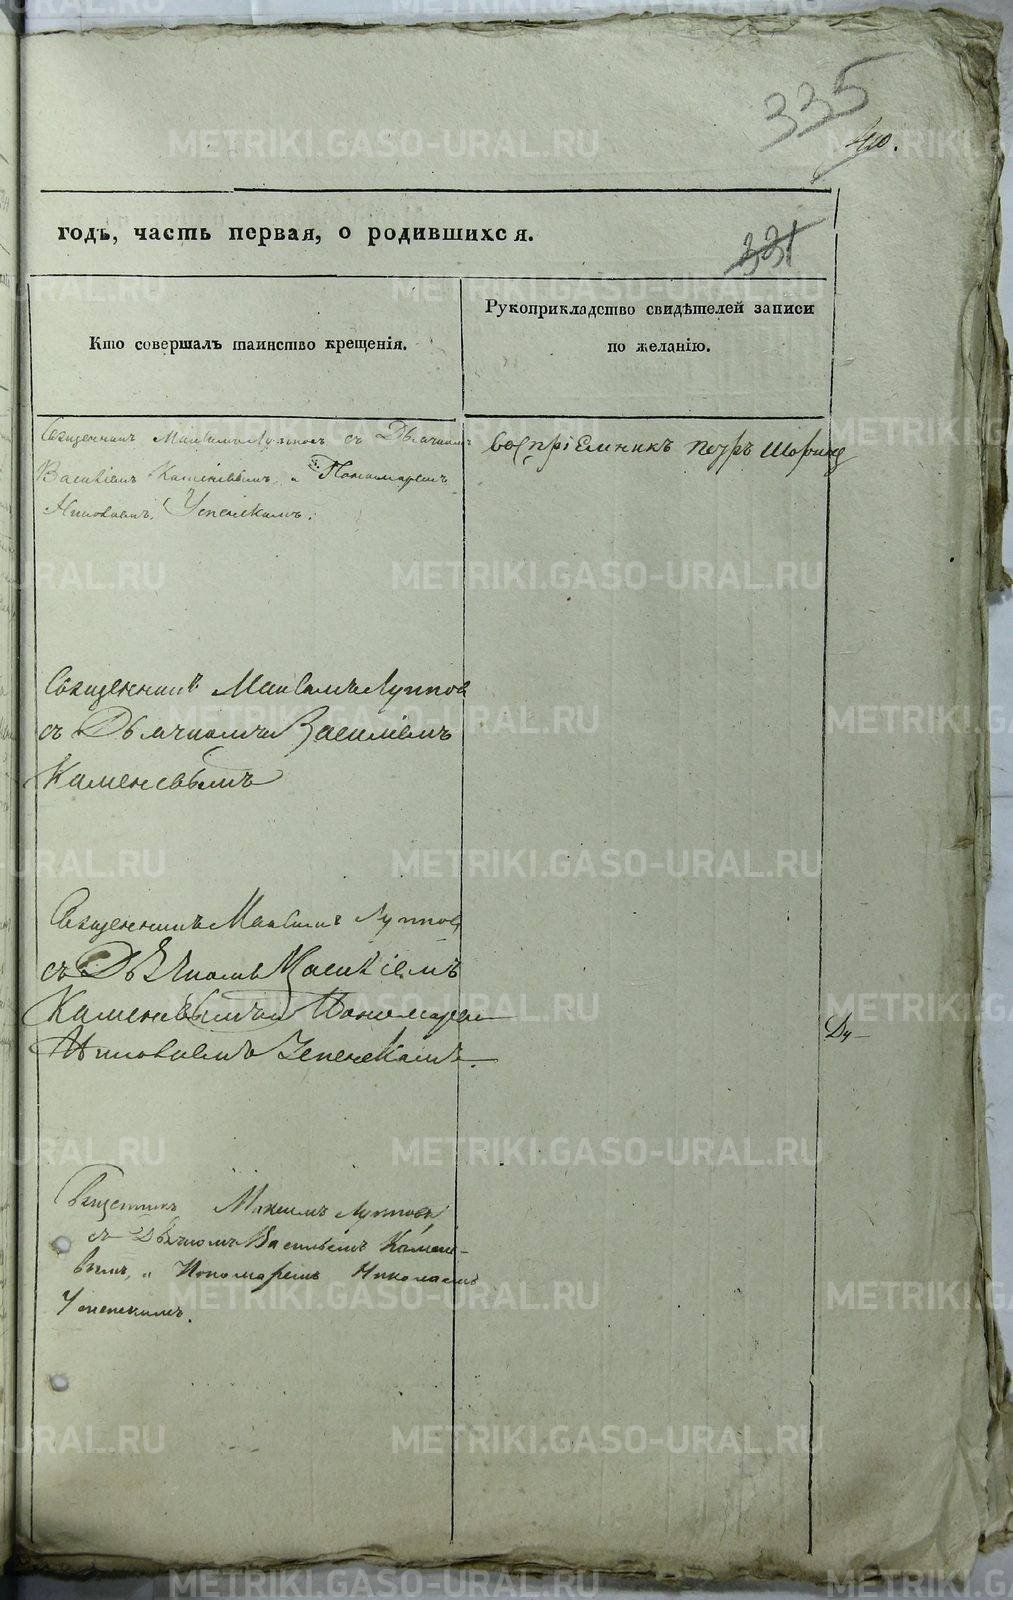 335
годъ, часть первая, о родившихся.
331
Кто совершалъ таинство крещенія.
Рукоприкладство свидѣтелей записи
по желанію.
Священникъ Максимъ Лупповъ съ Дьячкомъ
Василіемъ Каменевымъ и Пономаремъ
Николаемъ Успенскимъ.
воспріемникъ петръ Шорин
Священникъ Максимъ Луппов
съ Дьячкомъ Василіемъ
Каменевымъ
Священникъ Максимъ Луппов
съ Дьячкомъ Василіемъ
Каменевымъ и Пономарем
Николаемъ Успенскимъ.
Священникъ Максимъ Лупповъ
съ Дьячкомъ Васильемъ Камене-
вымъ, и Пономаремъ Николаемъ
Успенскимъ.
METRIKI.GASO-URAL.RU